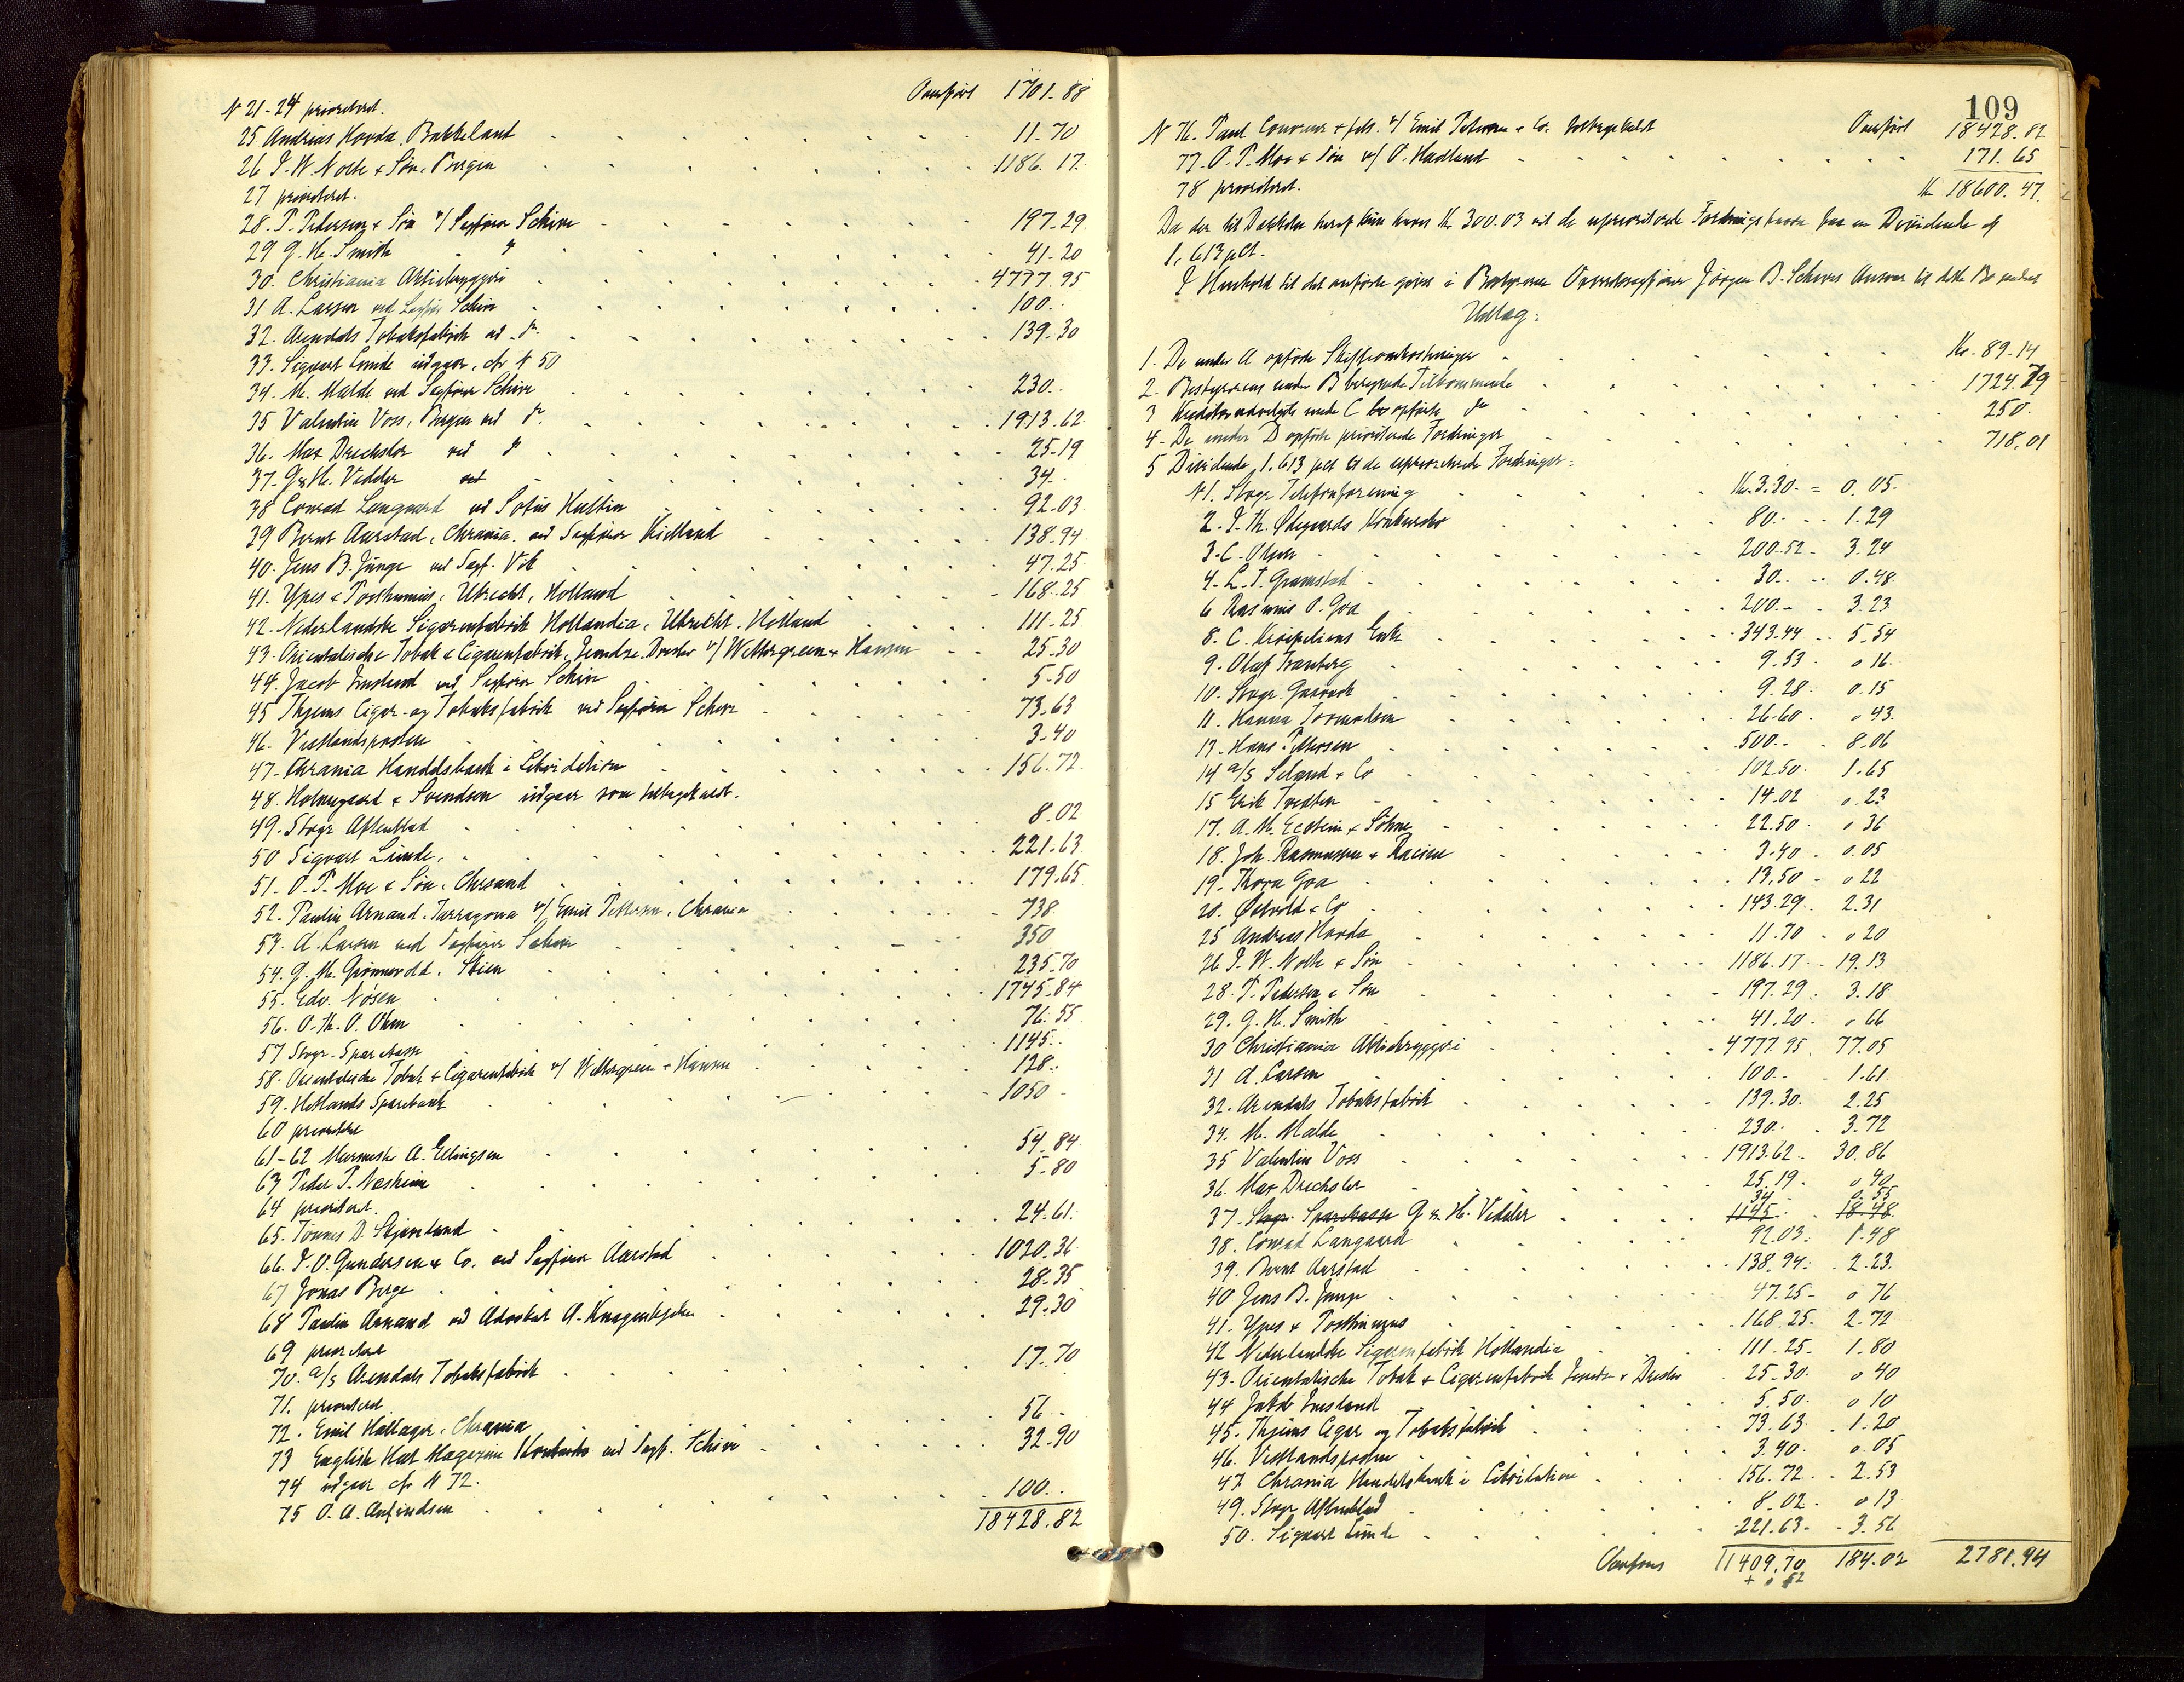 Overført 1701.88
N 21-24 prioriteret.
25 Andreas Hovda, Bakkeland 11.70
26 I. W. Nolte & Søn, Bergen 1186.17.
27 prioriteret.
28. P. Pedersen & Søn v/ Sagfører Schive 197.29
29 G. H. Smith " 41.20
30. Christiania Aktiebryggeri 4777.95
31 A. Larsen ved Sagfør Schive 100.
32. Arendals Tobaksfabrik ved do. 139.30
33. Sigvart Lunde udgaar, cfr N 50
34. M. Malde ved Sagfører Schive 230.
35 Valentin Voss, Bergen ved do. 1913.62
36. Max Drechsler ved do 25.19
37. G & H. Vedder ved 34.
38 Conrad Langaard ved Sofus Hultin 92.03
39 Bernt Aarstad, Chrania. ved Sagfører Kielland 138.94
40. Jens B. Junge ved Sagf. Vik 47.25
41. Ypes & Posthumus, Utrecht, Holland 168.25
42. Nederlandske Sigarenfabrik Hollandia, Utrecht, Holland 111.25
43. Orientalische Tobak & Cigarenfabrik, Jenidze, Dresden v/ Wettergreen & Hansen 25.30
44. Jacob Imsland ved Sagfører Schive 5.50
45 Thjems Cigar- og Tobaksfabrik ved Sagfører Schive 73.63
46. Vestlandsposten 3.40
47. Chrania Handelsbank i Likvidation 156.72
48. Holmegaard & Svendsen udgaar som tilbagekaldt.
49. Stvgr Aftenblad 8.02
50 Sigvart Lunde. 221.63
51. O. P. Moe & Søn, Chrsand 179.65
52. Paulin Arnaud, Tarragona v/ Emil Pettersen, Chrania 738
53. A. Larsen ved Sagfører Schive 350
54. G. M. Grønnevold, Skien 235.70
55. Edv. Nøsen 1745.84
56. O. Th. O. Ohm 76.55
57 Stvgr. Sparekasse 1145.
58. Orientalische Tobak & Cigarenfabrik v/ Wettergreen & Hansen 128.
59. Hetlands Sparebank 1050
60 prioriteret
61-62 Murmester A. Ellingsen 54.84
63 Peder P. Næsheim 5.80
64 prioriteret.
65. Tønnes D. Skjæveland 24.61
66. I. O. Gundersen & Co. ved Sagfører Aarstad 1020.36
67 Jonas Berge 28.35
68 Paulin Arnaud ved Advokat A. Knagenhjelm 29.30
69 prioriteret
70. A/S Arendals Tobaksfabrik 17.70
71. prioriteret
72. Emil Hallager, Chrania 56
73 English Hat Magazine Konkursbo ved Sagf. Schive 32.90
74 udgaar cfr N 72.
75 O. A. Anfindsen 100.
18428.82
109
N 76. Paul & fils. v/ Emil Petersen & Co. tilbagekaldt Overført 18428.82
77. O. P. Moe & Søn v/ O. Hadland 171.65
78 prioriteret. Kr 18600.47.
Da der til Dækkelse heraf kun haves Kr. 300.03 vil de uprioriterede Fordringshavere faa en Dividende af
1,613 pCt.
I Henhold til det anførte gives i Bestyreren Overretssagfører Jørgen B. Schives Ansvar til dette Bo saadant
Udlæg:
1. De under A opførte Skifteomkostninger Kr. 89.14
2. Bestyrerens under B beregnede Tilkommende 1724.79
3 Kreditorudvalgets under C opførte do 250.
4. De under D opførte prioriterede Fordringer 718.01
5 Dividende, 1.613 pct til de uprioriterede Fordringer:
N 1. Stvgr Telefonforening Kr. 3.30. = 0.05.
2. I. Th. Ødegaards Konkursbo 80. 1.29
3. C. Olsen 200.52 3.24
4. L. T. Gramstad 30. 0.48
6 Rasmus O. Goa 200. 3.23
8. C. Kroepeliens Enke 343.44 5.54
9. Olaf Tranberg 9.53 0 16.
10. Stvgr. Gasværk 9.28. 0.15
11. Hanna Tormodsen 26.60. 0 43.
13. Hans Pettersen 500. 8.06
14 A/S Seland & Co 102.50. 1.65
15 Erik Tvedten 14.02 0.23
17. A. M. Eckstein & Söhne 22.50 0 36
18. Joh. Rasmussen & Racine 3.40 0.05
19. Thora Goa 13.50 0 22
20. Østvold & Co 143.29. 2.31
25 Andreas Hovda 11.70 0 20
26 I. W. Nolte & Søn 1186.17 19.13
28. P. Pedersen & Søn 197.29. 3.18
29. G. H. Smith 41.20. 0 66
30 Christiania Aktiebryggeri 4777.95 77.05
31 A. Larsen 100. 1.61
32. Arendals Tobaksfabrik 139.30. 2.25
34. M. Malde 230. 3.72
35 Valentin Voss 1913.62 30.86
36. Max Drechsler 25.19. 0 40
34 0.55
37. Stvgr. Sparekasse G & H. Vedder 1145 18.48
38. Conrad Langaard 92.03. 1.48
39. Bernt Aarstad 138.94. 2.23.
40 Jens B. Junge 47.25 0 76
41. Ypes & Posthumus 168.25. 2.72
42 Nederlandske Sigarenfabrik Hollandia 111.25 1.80
43. Orientalische Tobak & Cigarenfabrik Jenidze Dresden 25.30. 0 40
44 Jakob Imsland 5.50. 0 10
45. Thjems Cigar og Tobaksfabrik 73.63. 1.20
46. Vestlandsposten 3.40. 0.05
47 Chrania Handelsbank i Likvidation 156.72 2.53
49. Stvgr Aftenblad 8.02 0 13
50. Sigvart Lunde 221.63 3.56
Overføres 11409.70 184.02 2781.94